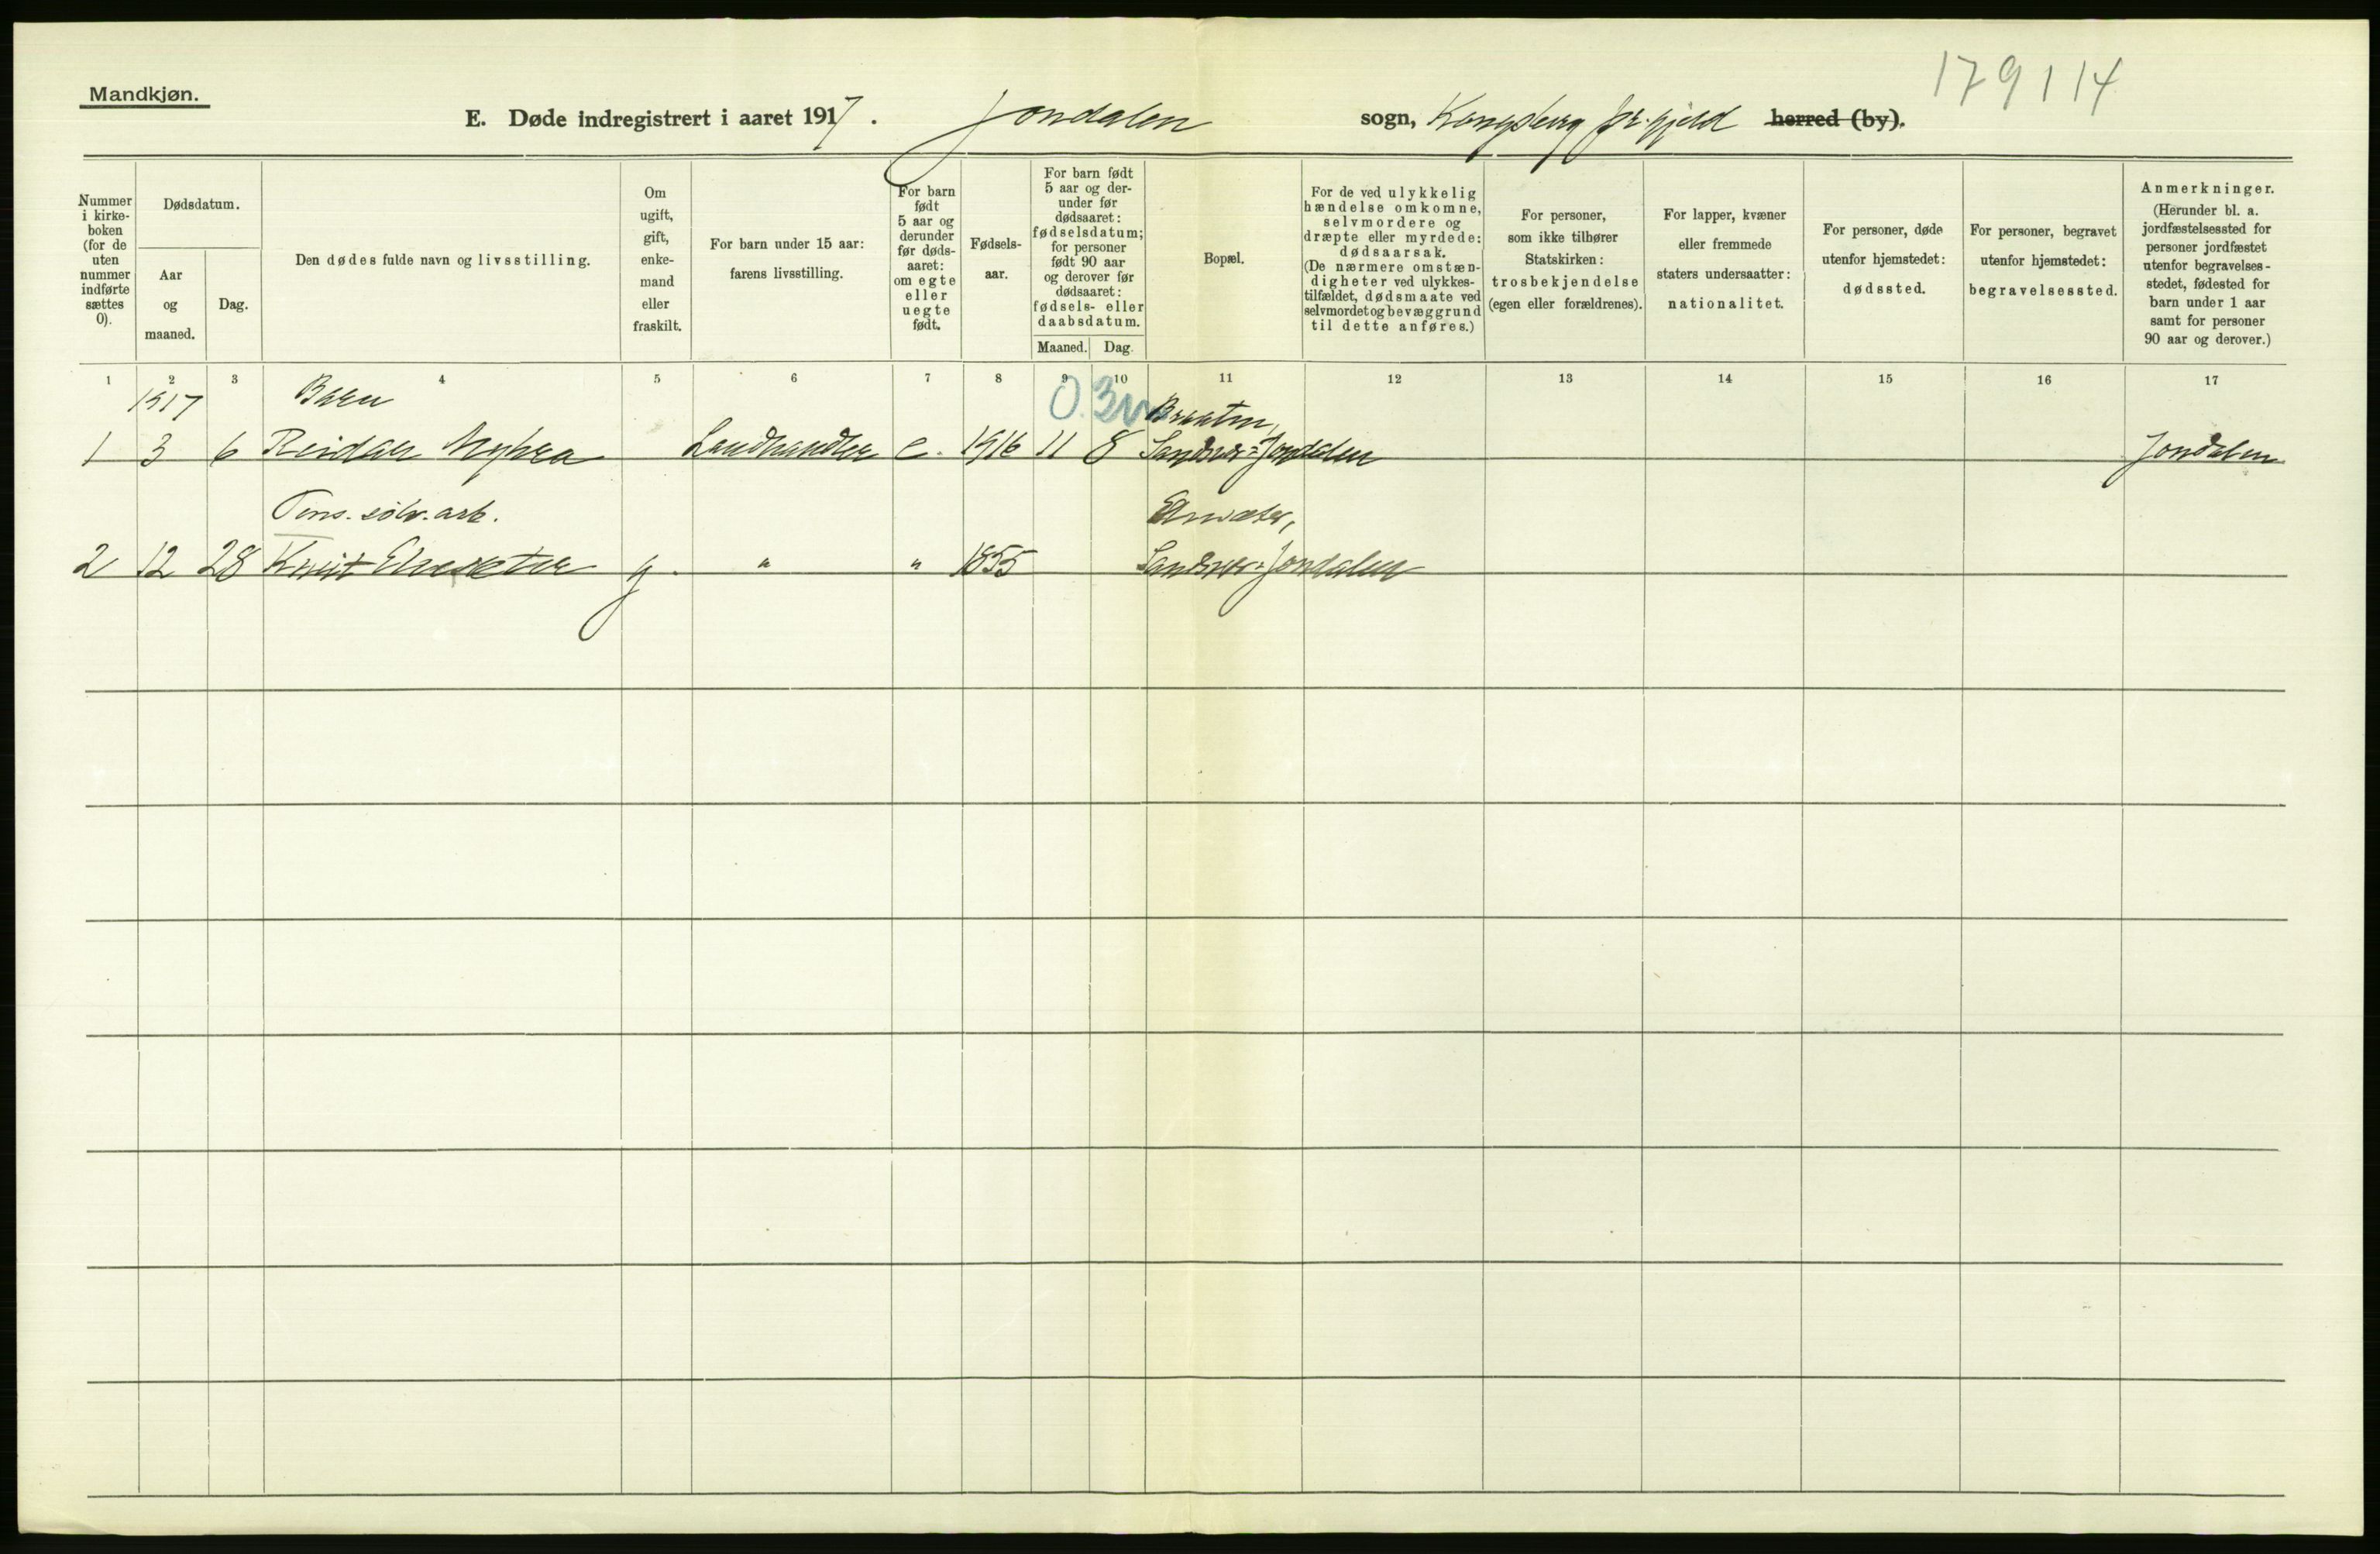 179114
Mandkjøn.
E. Døde indregistrert i aaret 1917. Jondalen sogn, Kongsberg pr.gjeld herred (by).
Nummer
i kirke-
boken
(for de
uten
nummer
indførte
sættes
0).
Dødsdatum.
Aar
og
maaned.
Dag.
Den dødes fulde navn og livsstilling.
Om
ugift,
gift,
enke-
mand
eller
fraskilt.
For barn under 15 aar:
farens livsstilling.
For barn
født
5 aar og
derunder
før døds-
aaret:
om egte
eller
uegte
født.
Fødsels-
aar.
For barn født
5 aar og der-
under før
dødsaaret:
fødselsdatum;
for personer
født 90 aar
og derover før
dødsaaret:
fødsels- eller
daabsdatum.
Maaned. Dag.
Bopæl.
For de ved ulykkelig
hændelse omkomne,
selvmordere og
dræpte eller myrdede:
dødsaarsak.
(De nærmere omstæn-
digheter ved ulykkes-
tilfældet, dødsmaate ved
selvmordet og bevæggrund
til dette anføres.)
For personer,
som ikke tilhører
Statskirken:
trosbekjendelse
(egen eller forældrenes).
For lapper, kvæner
eller fremmede
staters undersaatter:
nationalitet.
For personer, døde
utenfor hjemstedet:
dødssted.
For personer, begravet
utenfor hjemstedet:
begravelsessted.
Anmerkninger.
(Herunder bl. a.
jordfæstelsessted for
personer jordfæstet
utenfor begravelses-
stedet, fødested for
barn under 1 aar
samt for personer
90 aar og derover.)
1 2 3 4 5 6 7 8 9 10 11 12 13 14 15 16 17
1917 Barn 0.3m Braaten,
1 3 6 Reidar Myhra Landhandler e. 1916 11 8 Sandsvær-Jondalen Jondalen
Pens. sølv.arb. Elvesæter,
2 12 28 Knut Elvesæter g. " " 1855 Sandsvær-Jondalen